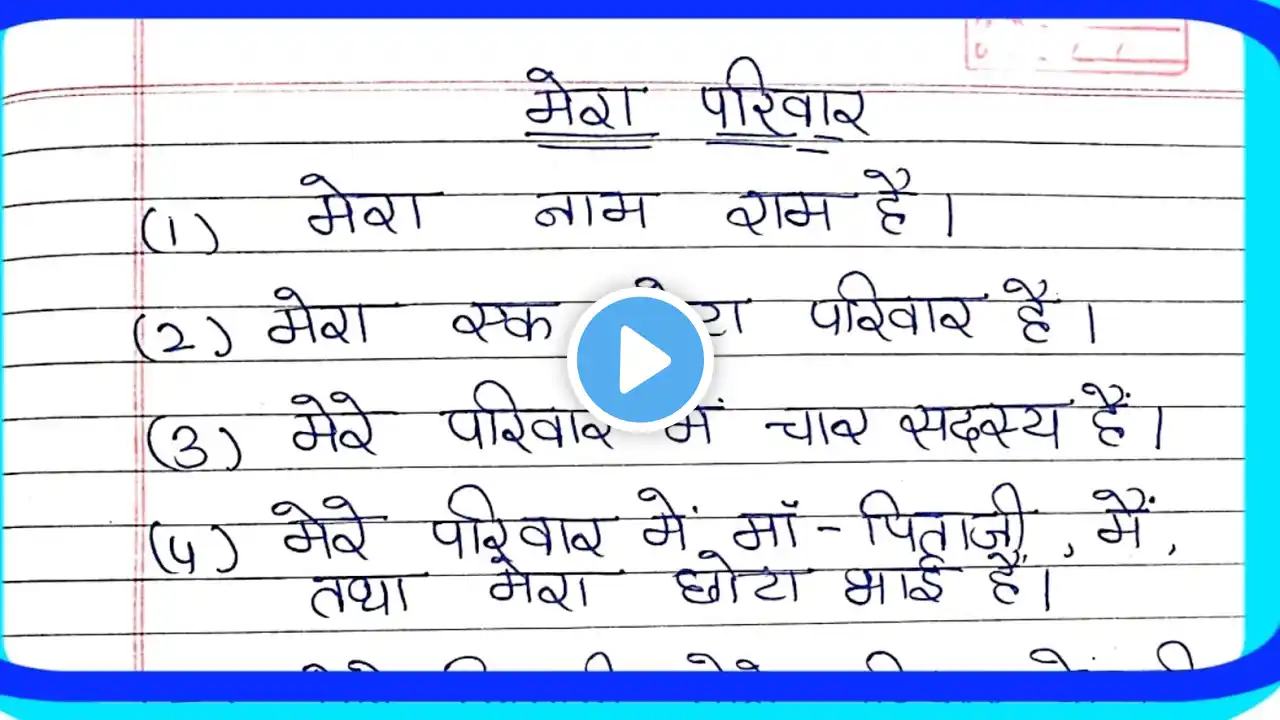 मेरा परिवार
(1) मेरा नाम राम है।
(2) मेरा एक परिवार है।
(3) मेरे परिवार में चार सदस्य हैं।
(4) मेरे परिवार में माँ - पिताजी, मैं,
तथा मेरा छोटा भाई हैं।